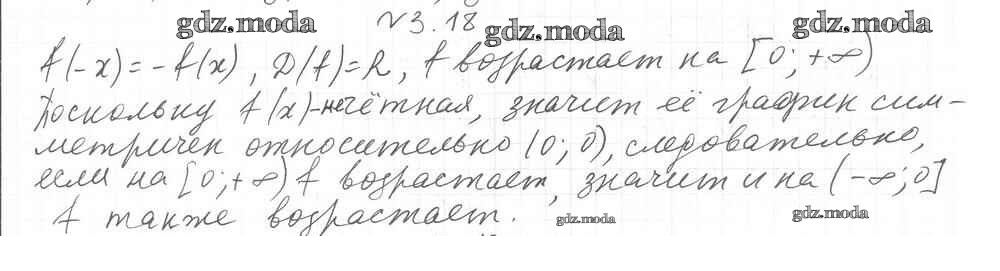 №3.18
f(-x)=-f(x), D(f)=R, f возрастает на [0;+∞)
Поскольку f(x)-нечётная, значит её график сим-
метричен относительно (0;0), следовательно,
если на [0;+∞) f возрастает, значит и на (-∞;0]
f также возрастает.
gdz.moda
gdz.moda
gdz.moda
gdz.moda
gdz.moda